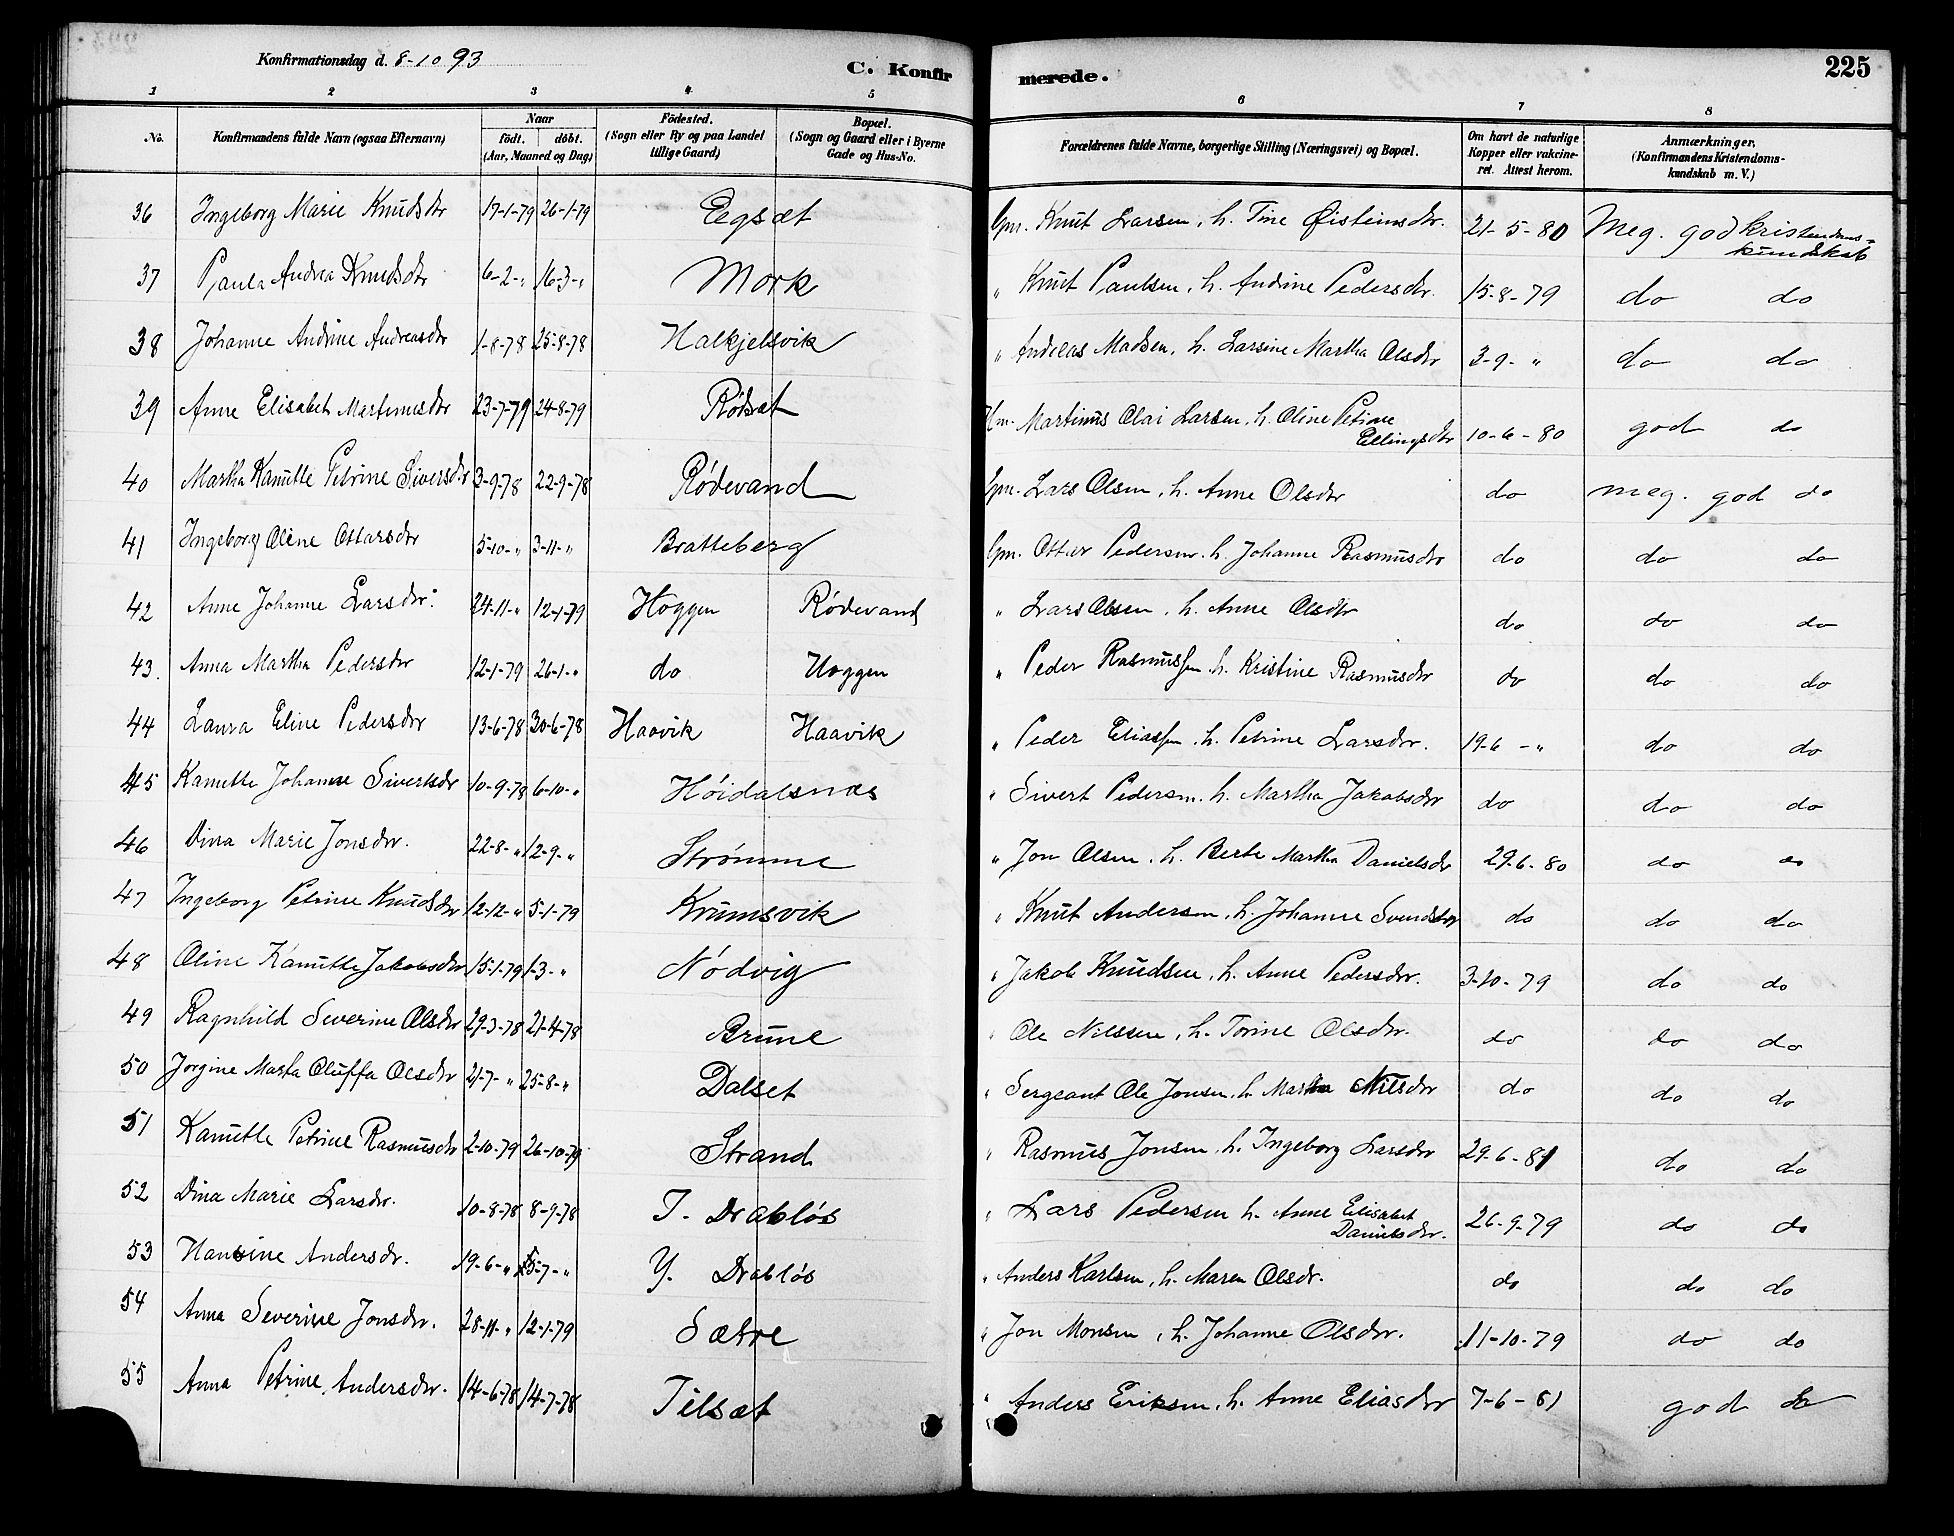 Konfirmationsdag d. 8-10 93
C. Konfir
merede.
225
1 2 3 4 5 6 7 8
No.
Konfirmandens fulde Navn (ogsaa Efternavn)
Naar
födt. döbt.
(Aar, Maaned og Dag)
Födested.
(Sogn eller By og paa Landet
tillige Gaard)
Bopæl.
(Sogn og Gaard eller i Byerne
Gade og Hus-No.
Forældrenes fulde Navne, borgerlige Stilling (Næringsvei) og Bopæl.
Om havt de naturlige
Kopper eller vakcine-
ret. Attest herom.
Anmærkninger.
(Konfirmandens Kristendoms-
kundskab m. V.)
36 Ingeborg Marie Knudsdtr 17-1-79 26-1-79 Eegsæt Gm. Knut Larsen, h. Tine Øisteinsdtr. 21-5-80 Meg. god kristendoms-
kundskab
37 Paula Andrea Knudsdtr 6-2-" 16-3-" Mork " Knut Paulsen, h. Andrine Pedersdtr. 15-8-79 do do
38 Johanne Andrine Andreasdtr 1-8-78 25-8-78 Halkjelsvik " Andreas Madsen, h. Larsine Martha Olsdtr 3-9-" do do
39 Anne Elisabet Martinusdtr 23-7-79 24-8-79 Rødsæt Hm. Martinus Olai Larsen, h. Oline Petrine
Ellingsdtr 10-6-80 god do
40 Martha Kanutte Petrine Siversdtr 3-9-78 22-9-78 Rødevand Gm. Lars Olsen, h. Anne Olsdtr do meg. god do
41 Ingeborg Oline Ottarsdtr 5-10-" 3-11-" Bratteberg Gm. Ottar Pedersen. h. Johanne Rasmusdtr do do do
42 Anne Johanne Larsdtr. 24-11-" 12-1-79 Hoggen Rødevand " Lars Olsen, h. Anne Olsdtr do do do
43. Anna Martha Pedersdtr 12-1-79 26-1-" do Hoggen " Peder Rasmussen, h. Kristine Rasmusdtr do do do
44 Laura Eline Pedersdtr 13-6-78 30-6-78 Haavik Haavik " Peder Eliassen, h. Petrine Larsdtr. 19-6-" do do
45 Kanutte Johanne Sivertsdtr 10-9-78 6-10-" Høidalsnes " Sivert Pedersen, h. Martha Jakobsdtr do do do
46 Dina Marie Jonsdtr. 22-8-" 12-9-" Strømme " Jon Olsen, h. Berte Martha Danielsdtr 29-6-80 do do
47 Ingeborg Petrine Knudsdtr 12-12-" 5-1-79 Krumsvik " Knut Andersen, h. Johanne Svendsdtr do do do
48 Oline Kanutte Jakobsdtr 15-1-79 1-3-" Nødvig " Jakob Knudsen, h. Anne Pedersdtr. 3-10-79 do do
49 Ragnhild Severine Olsdtr 29-3-78 21-4-78 Brune " Ole Nilssen, h. Torine Olsdtr. do do do
50 Jorgine Marta Oluffa Olsdtr 21-7-" 25-8-" Dalset " Sergeant Ole Jonsen, h. Martha Nilsdtr do do do
51 Kanutte Petrine Rasmusdtr 2-10-79 26-10-79 Strand " Rasmus Jonsen, h. Ingeborg Larsdtr 29-6-81 do do
52 Dina Marie Larsdtr. 10-8-78 8-9-78 I. Drabløs " Lars Pedersen h. Anne Elisabet
Danielsdtr. 26-9-79 do do
53 Hansine Andersdtr. 19-6-" 15-7-" Y. Drabløs " Anders Karlsen, h. Maren Olsdtr. do do do
54 Anna Severine Jonsdtr. 28-11-" 12-1-79 Sætre " Jon Monsen, h. Johanne Olsdtr. 11-10-79 do do
55 Anna Petrine Andersdtr. 14-6-78 14-7-78 Tilsæt " Anders Eriksen, h. Anne Eliasdtr 7-6-81 god do